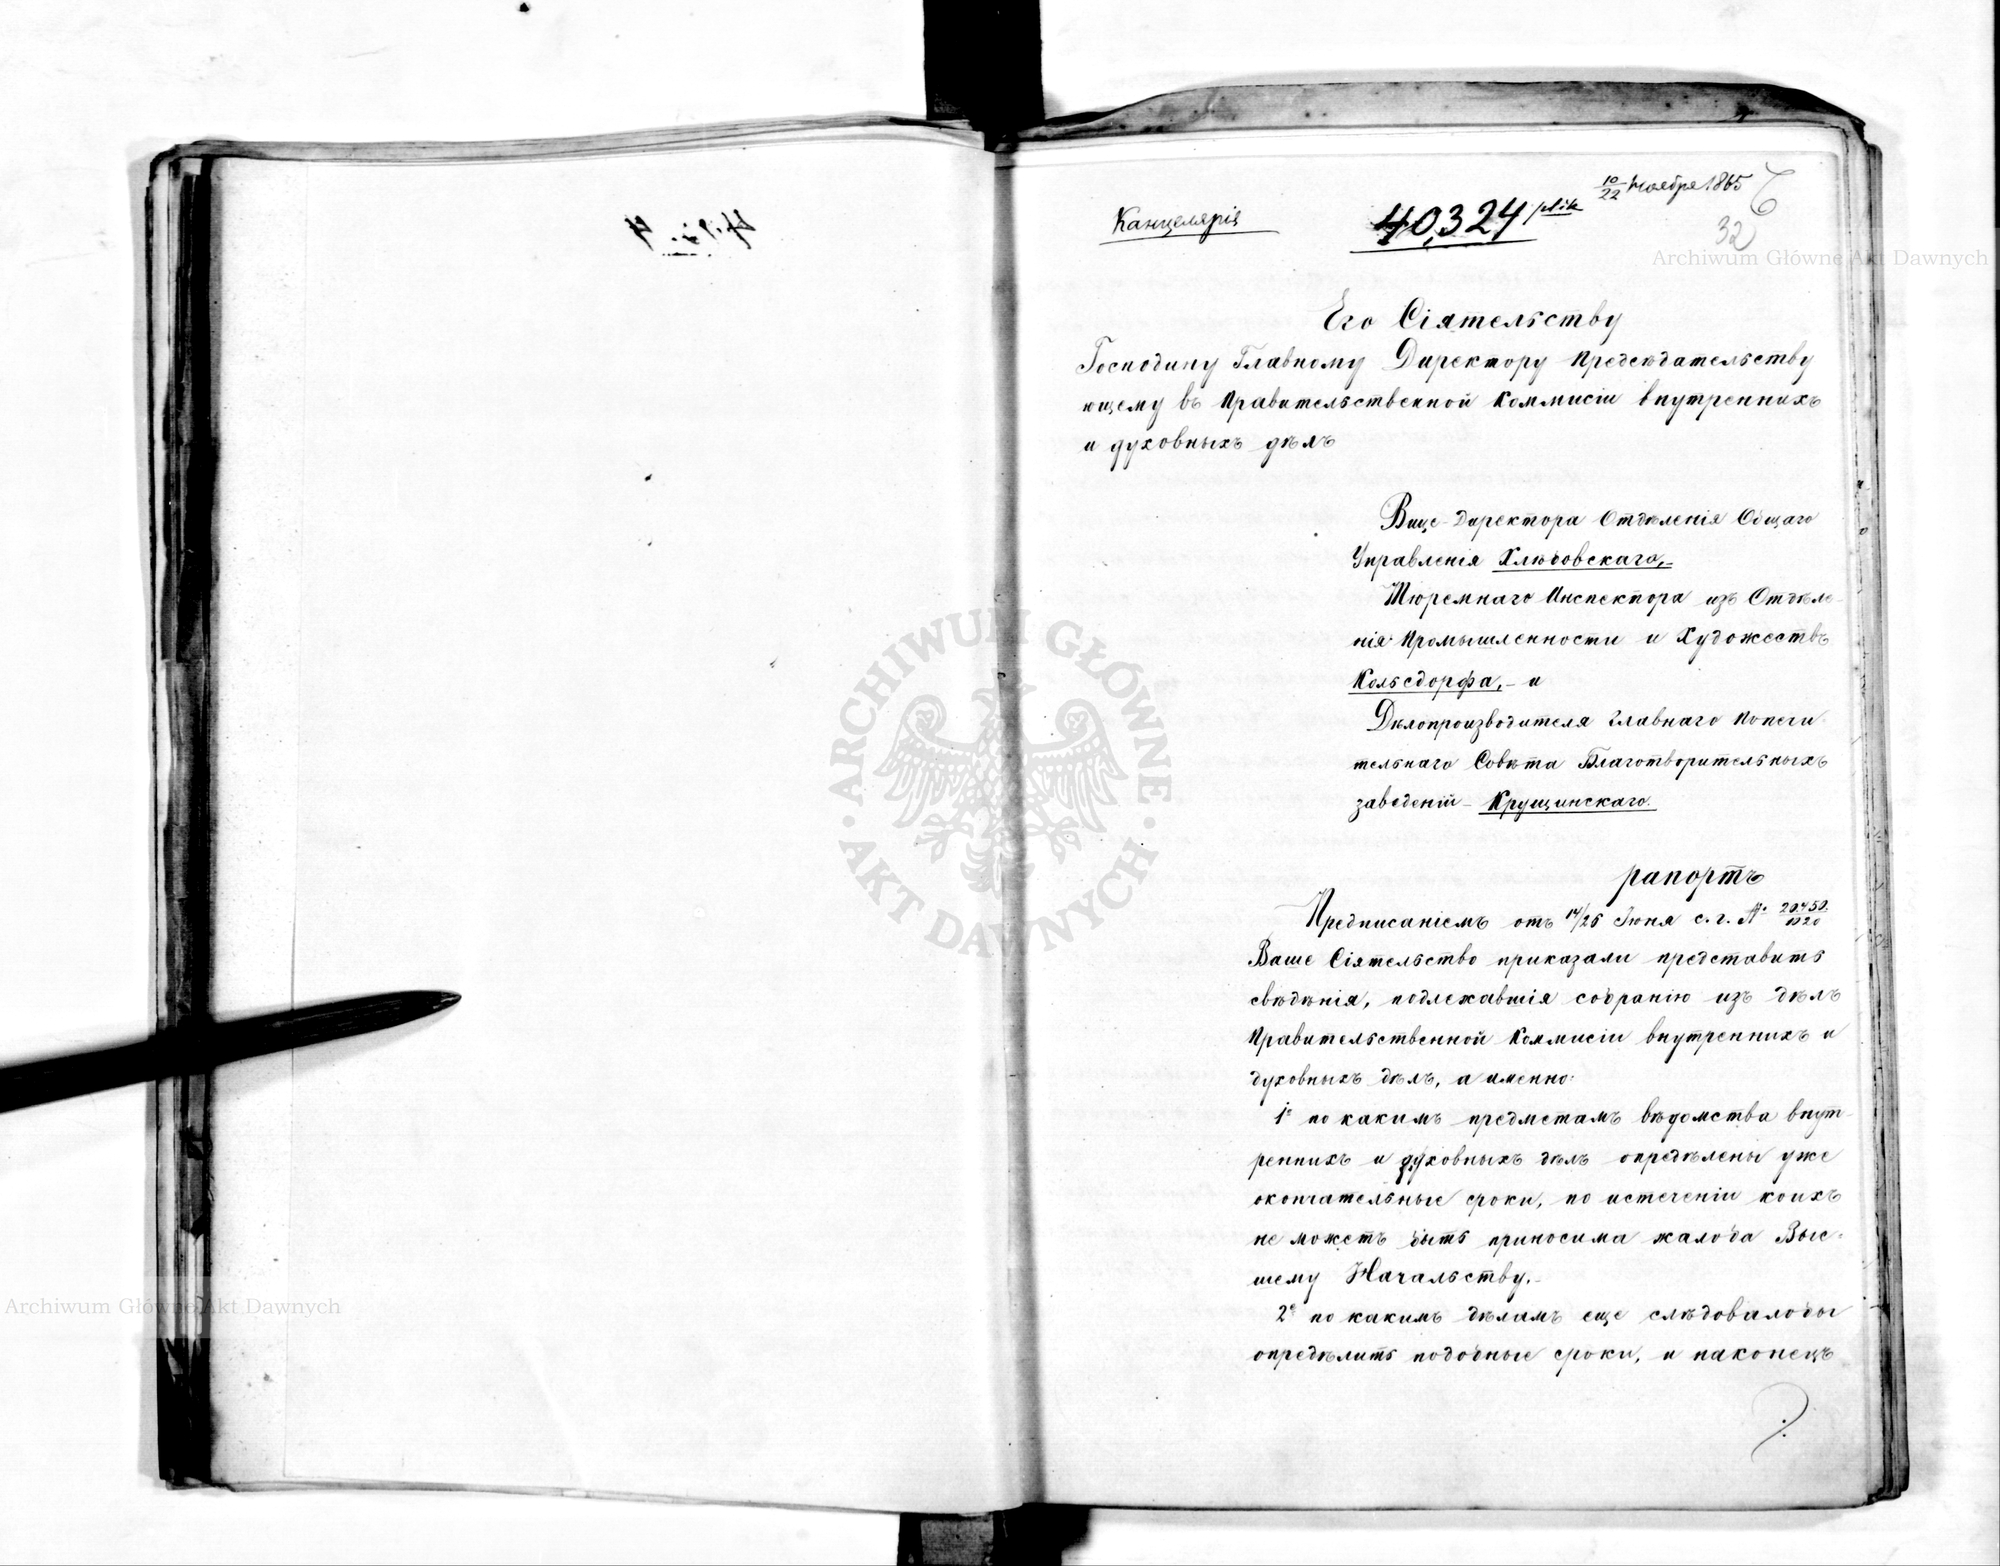 10/22 Ноября 1865
Канцелярія
40,324 plik
32
Его Сіятельству
Господину Главному Директору Предсѣдательству
ющему въ Правительственной Коммисіи внутреннихъ
и духовныхъ дѣлъ
Вице-Директора Отдѣленія Общаго
Управленія Хлѣбовскаго,-
Тюремнаго Инспектора изъ Отдѣле-
нія Промышленности и Художествъ
Кольсдорфа,- и
Дѣлопроизводителя Главнаго Попечи-
тельнаго Совѣта Благотворительныхъ
заведеній - Крущинскаго.
рапортъ
Предписаніемъ отъ 14/26 Іюня с.г. №
Ваше Сіятельство приказали представить
свѣдѣнія, подлежавшія собранію изъ дѣлъ
Правительственной Коммисіи внутреннихъ и
духовныхъ дѣлъ, а именно:
1е по какимъ предметамъ вѣдомства внут-
реннихъ и духовныхъ дѣлъ опредѣлены уже
окончательные сроки, по истеченіи коихъ
не можетъ быть приносима жалоба Выс-
шему Начальству.-
2е по какимъ дѣламъ еще слѣдовалобы
опредѣлить подобные сроки, и наконецъ
ARCHIWUM GŁÓWNE AKT DAWNYCH
Archiwum Główne Akt Dawnych
Archiwum Główne Akt Dawnych